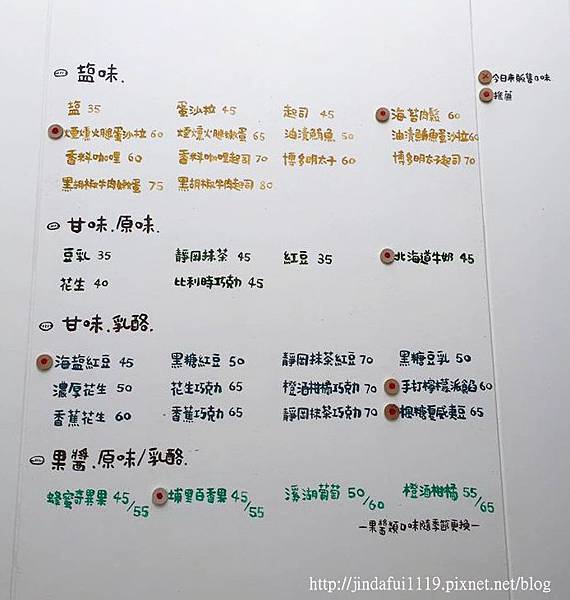 塩味.
今日未販售口味
推薦
塩 35 蛋沙拉 45 起司 45 海苔肉鬆 60
煙燻火腿蛋沙拉 60 煙燻火腿嫩蛋 65 油漬鯛魚 50 油漬鯛魚蛋沙拉 60
香料咖哩 60 香料咖哩起司 70 博多明太子 60 博多明太子起司 70
黑胡椒牛肉嫩蛋 75 黑胡椒牛肉起司 80
甘味.原味.
豆乳 35 靜岡抹茶 45 紅豆 35 北海道牛奶 45
花生 40 比利時巧克力 45
甘味.乳酪.
海塩紅豆 45 黑糖紅豆 50 靜岡抹茶紅豆 70 黑糖豆乳 50
濃厚花生 50 花生巧克力 65 橙酒柑橘巧克力 70 手打檸檬派餡 60
香蕉花生 60 香蕉巧克力 65 靜岡抹茶巧克力 70 楓糖夏威夷豆 65
果醬.原味/乳酪.
蜂蜜奇異果 45/55 埔里百香果 45/55 溪湖葡萄 50/60 橙酒柑橘 55/65
—果醬類口味隨季節更換—
http://jindafui1119.pixnet.net/blog